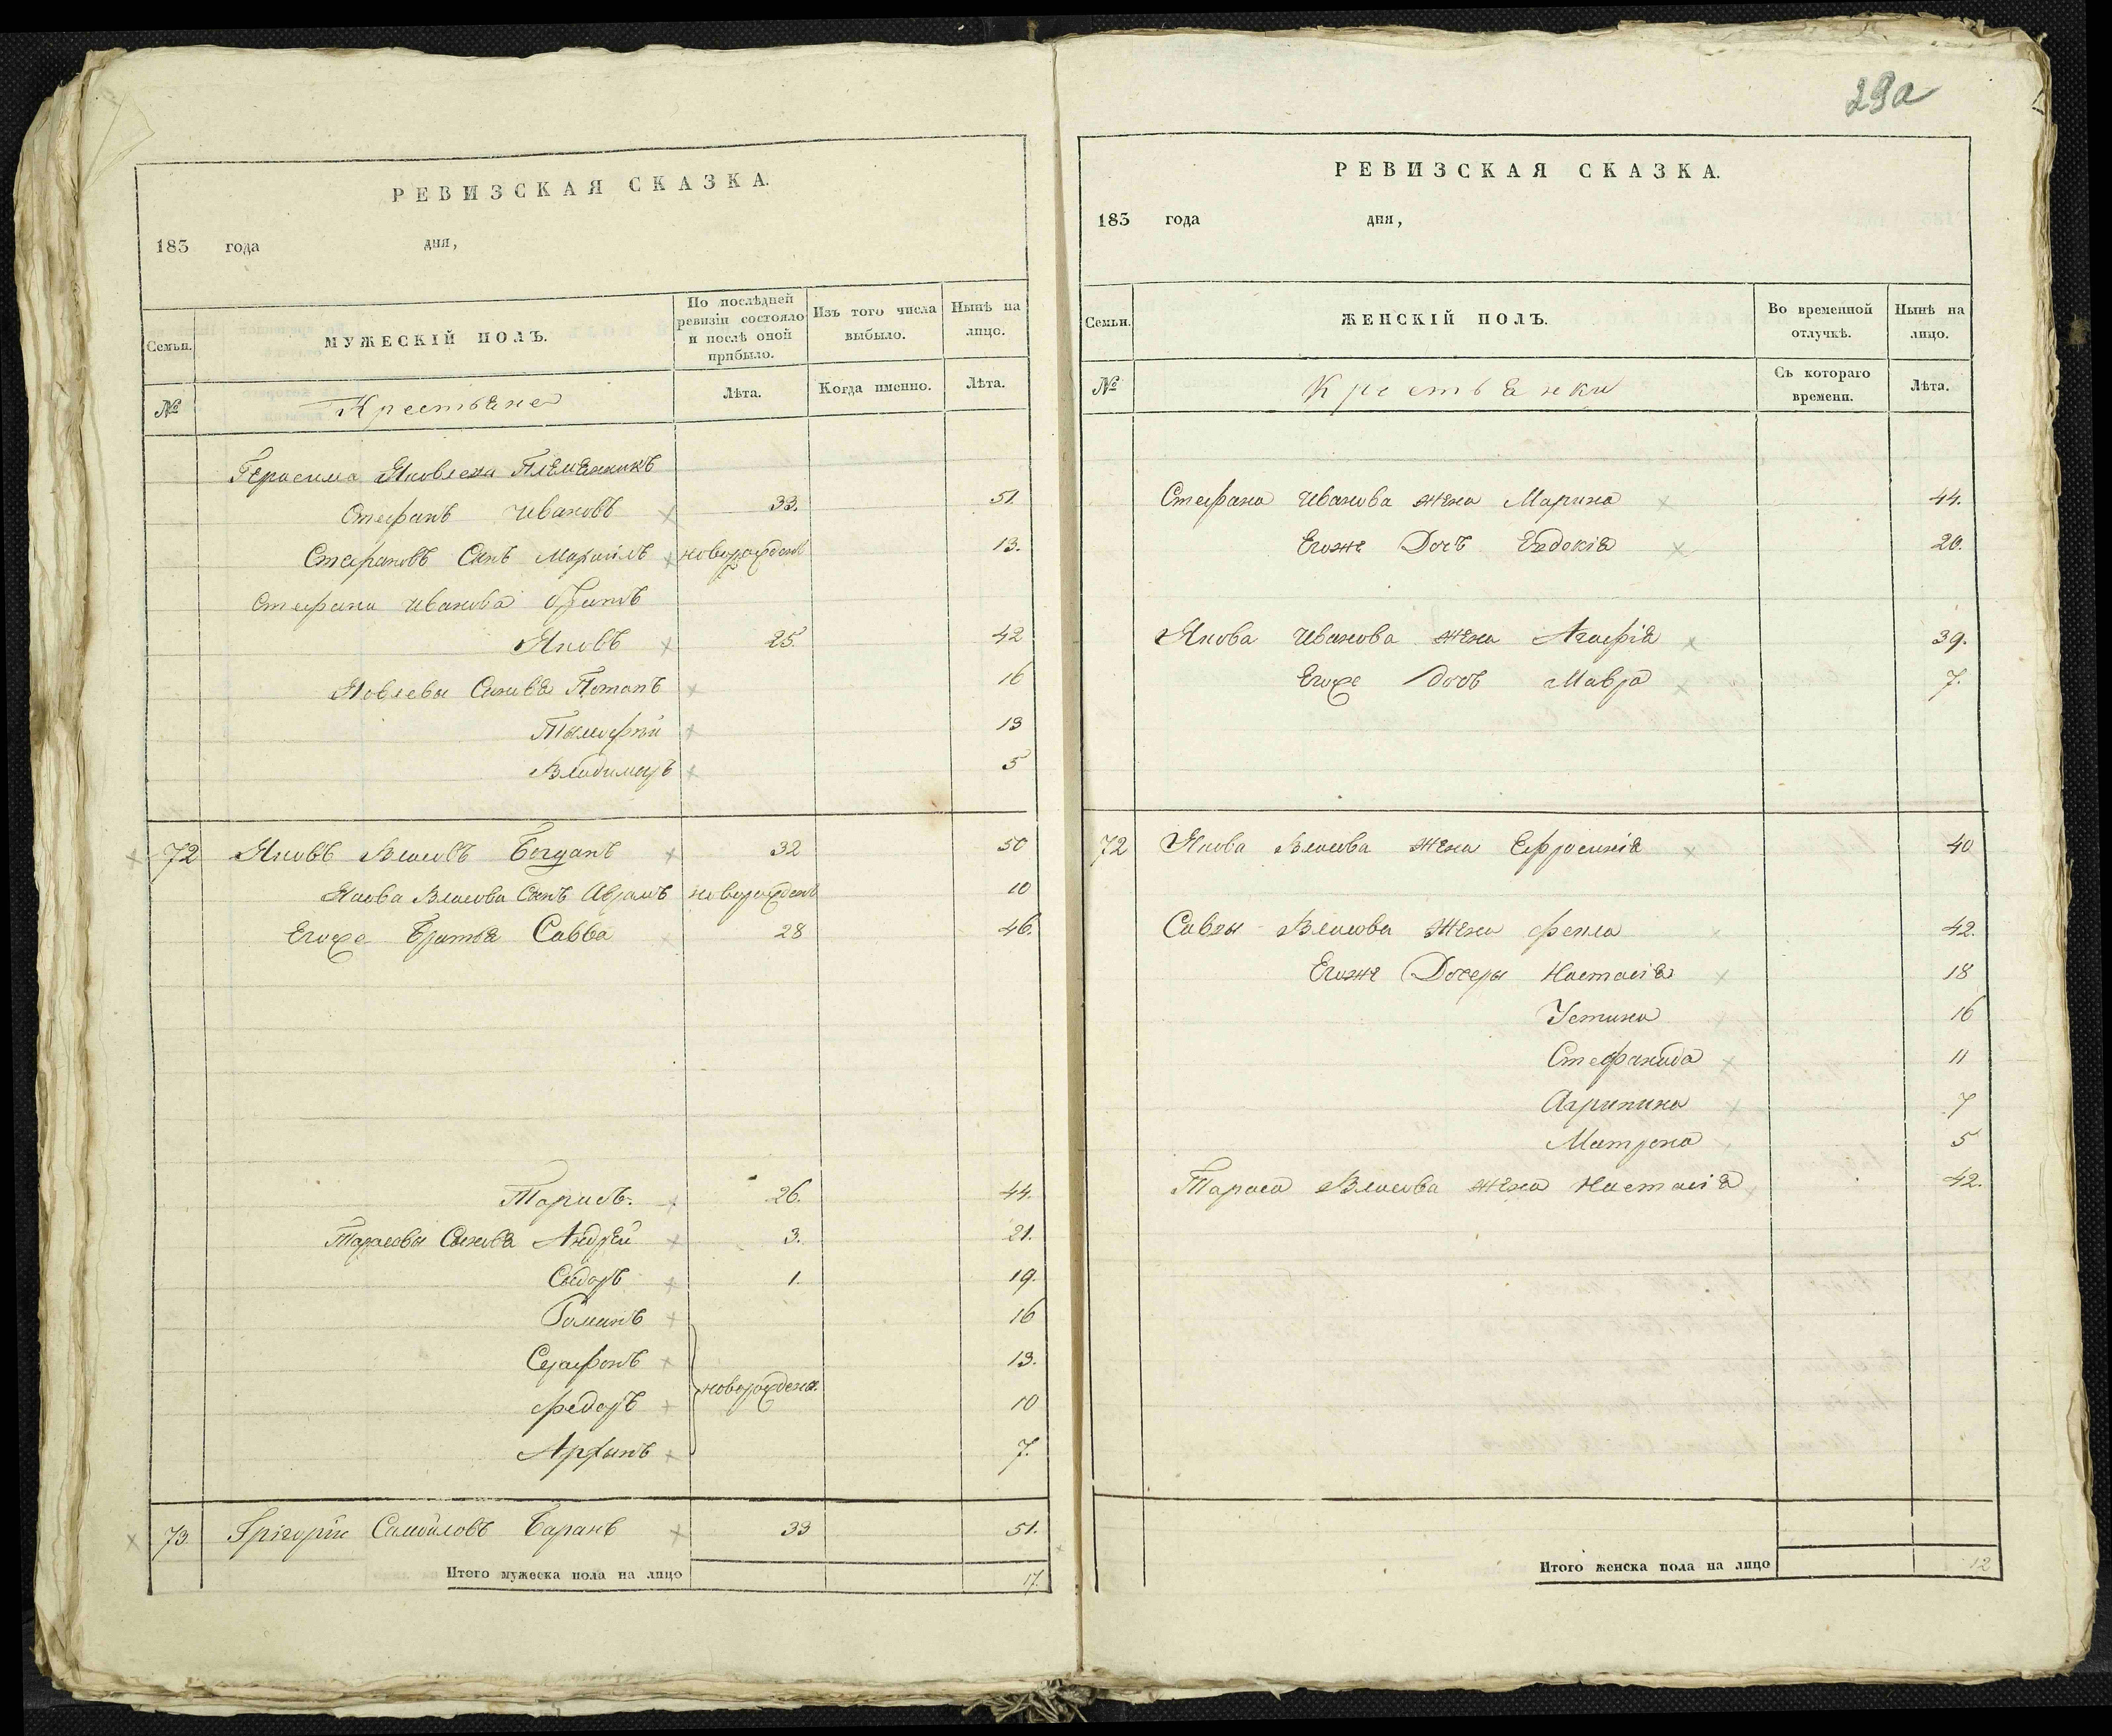 29а
РЕВИЗСКАЯ СКАЗКА.
183 года дня,
Семьи. МУЖЕСКІЙ ПОЛЪ. По послѣдней ревизіи состояло и послѣ оной прибыло. Изъ того числа выбыло. Нынѣ на лицо.
№ Крестьяне Лѣта. Когда именно. Лѣта.
Герасима Яковлева Племянникъ
Стефанъ Ивановъ 33. 51.
Стефановъ Сынъ Мараилъ новорожденъ 13.
Стефана Иванова братъ
Яковъ 25. 42
Яковлевы Сыновя Потапъ 16
Тымофѣй 13
Владимеръ 5
72 Яковъ Власовъ Богданъ 32 50
Якова Власова Сынъ Аврамъ новорожденъ 10
Егоже Братья Савва 28 46.
Тарасъ. 26. 44.
Тарасовы Сыновя Андрей 3. 21.
Сыдоръ 1. 19.
Романъ 16
Серафонъ 13.
новорождены
Федоръ 10
Архыпъ 7.
73. Григорій Самойловъ Баранъ 33 51.
Итого мужеска пола на лицо 17.
РЕВИЗСКАЯ СКАЗКА.
183 года дня,
Семьи. ЖЕНСКІЙ ПОЛЪ. Во временной отлучкѣ. Нынѣ на лицо.
№ Крестьянки Съ котораго времени. Лѣта.
Стефана Иванова жена Марина 44.
Егоже Дочь Евдокія 20.
Якова Иванова жена Агафія 39.
Егоже дочь Мавра 7.
72 Якова Власова жена Ефросинія 40
Саввы Власова жена Фекла 42.
Егоже Дочеры Настасія 18
Устина 16
Стефанида 11
Агрипина 7
Матрона 5
Тараса Власова жена Настасія 42.
Итого женска пола на лицо 12